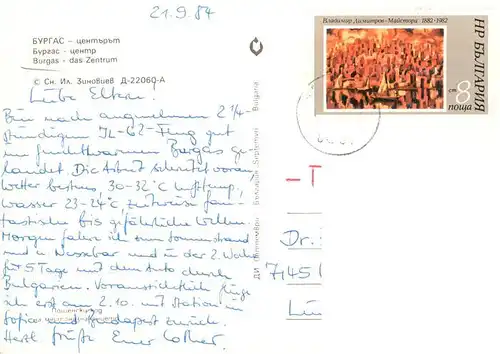 21.9.84
БУРГАС – центърът
Бургас - центр
Burgas - das Zentrum
© Сн. Ил. Зиновиев Д-22060-А
Liebe Eltern,
Bin nach angenehmen 2 1/4-
stündigem IL-62-Flug gut
im Burgas ge-
landet. Die Arbeit schreitet voran,
Wetter bestens, 30-32°C Lufttemp,
Wasser 23-24°C, zeitweise fan-
tastische bis gefährliche Wellen.
Morgen fahre ich zum Sonnenstrand
und n. Nessebar und in der 2. Woche
für 5 Tage mit dem Auto durch
Bulgarien. Voraussichtlich fliege
ich erst am 2.10. mit Station in
Sofia und Budapest zurück.
Herzl. Grüße Euer Lothar.
ДИ „Септември” България Septemvri Bulgaria
Владимир Димитров - Майстора 1882-1982
НР БЪЛГАРИЯ
ст 8
поща
–T
Dr.
7145